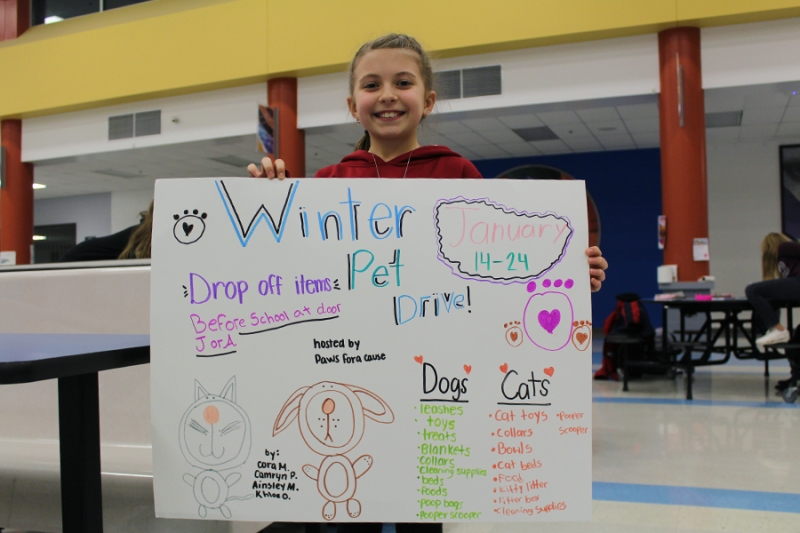 Winter
Pet
Drive!
January
14-24
Drop off items
Before School at door
J or A
hosted by
Paws for a cause
Dogs
leashes
toys
treats
Blankets
collars
cleaning supplies
beds
foods
poop bags
Pooper scooper
Cats
Cat toys
Collars
Bowls
Cat beds
Food
Kitty litter
litter box
Cleaning supplies
Pooper
scooper
by:
Cora M.
Camryn P.
Ainsley M.
Khloe O.